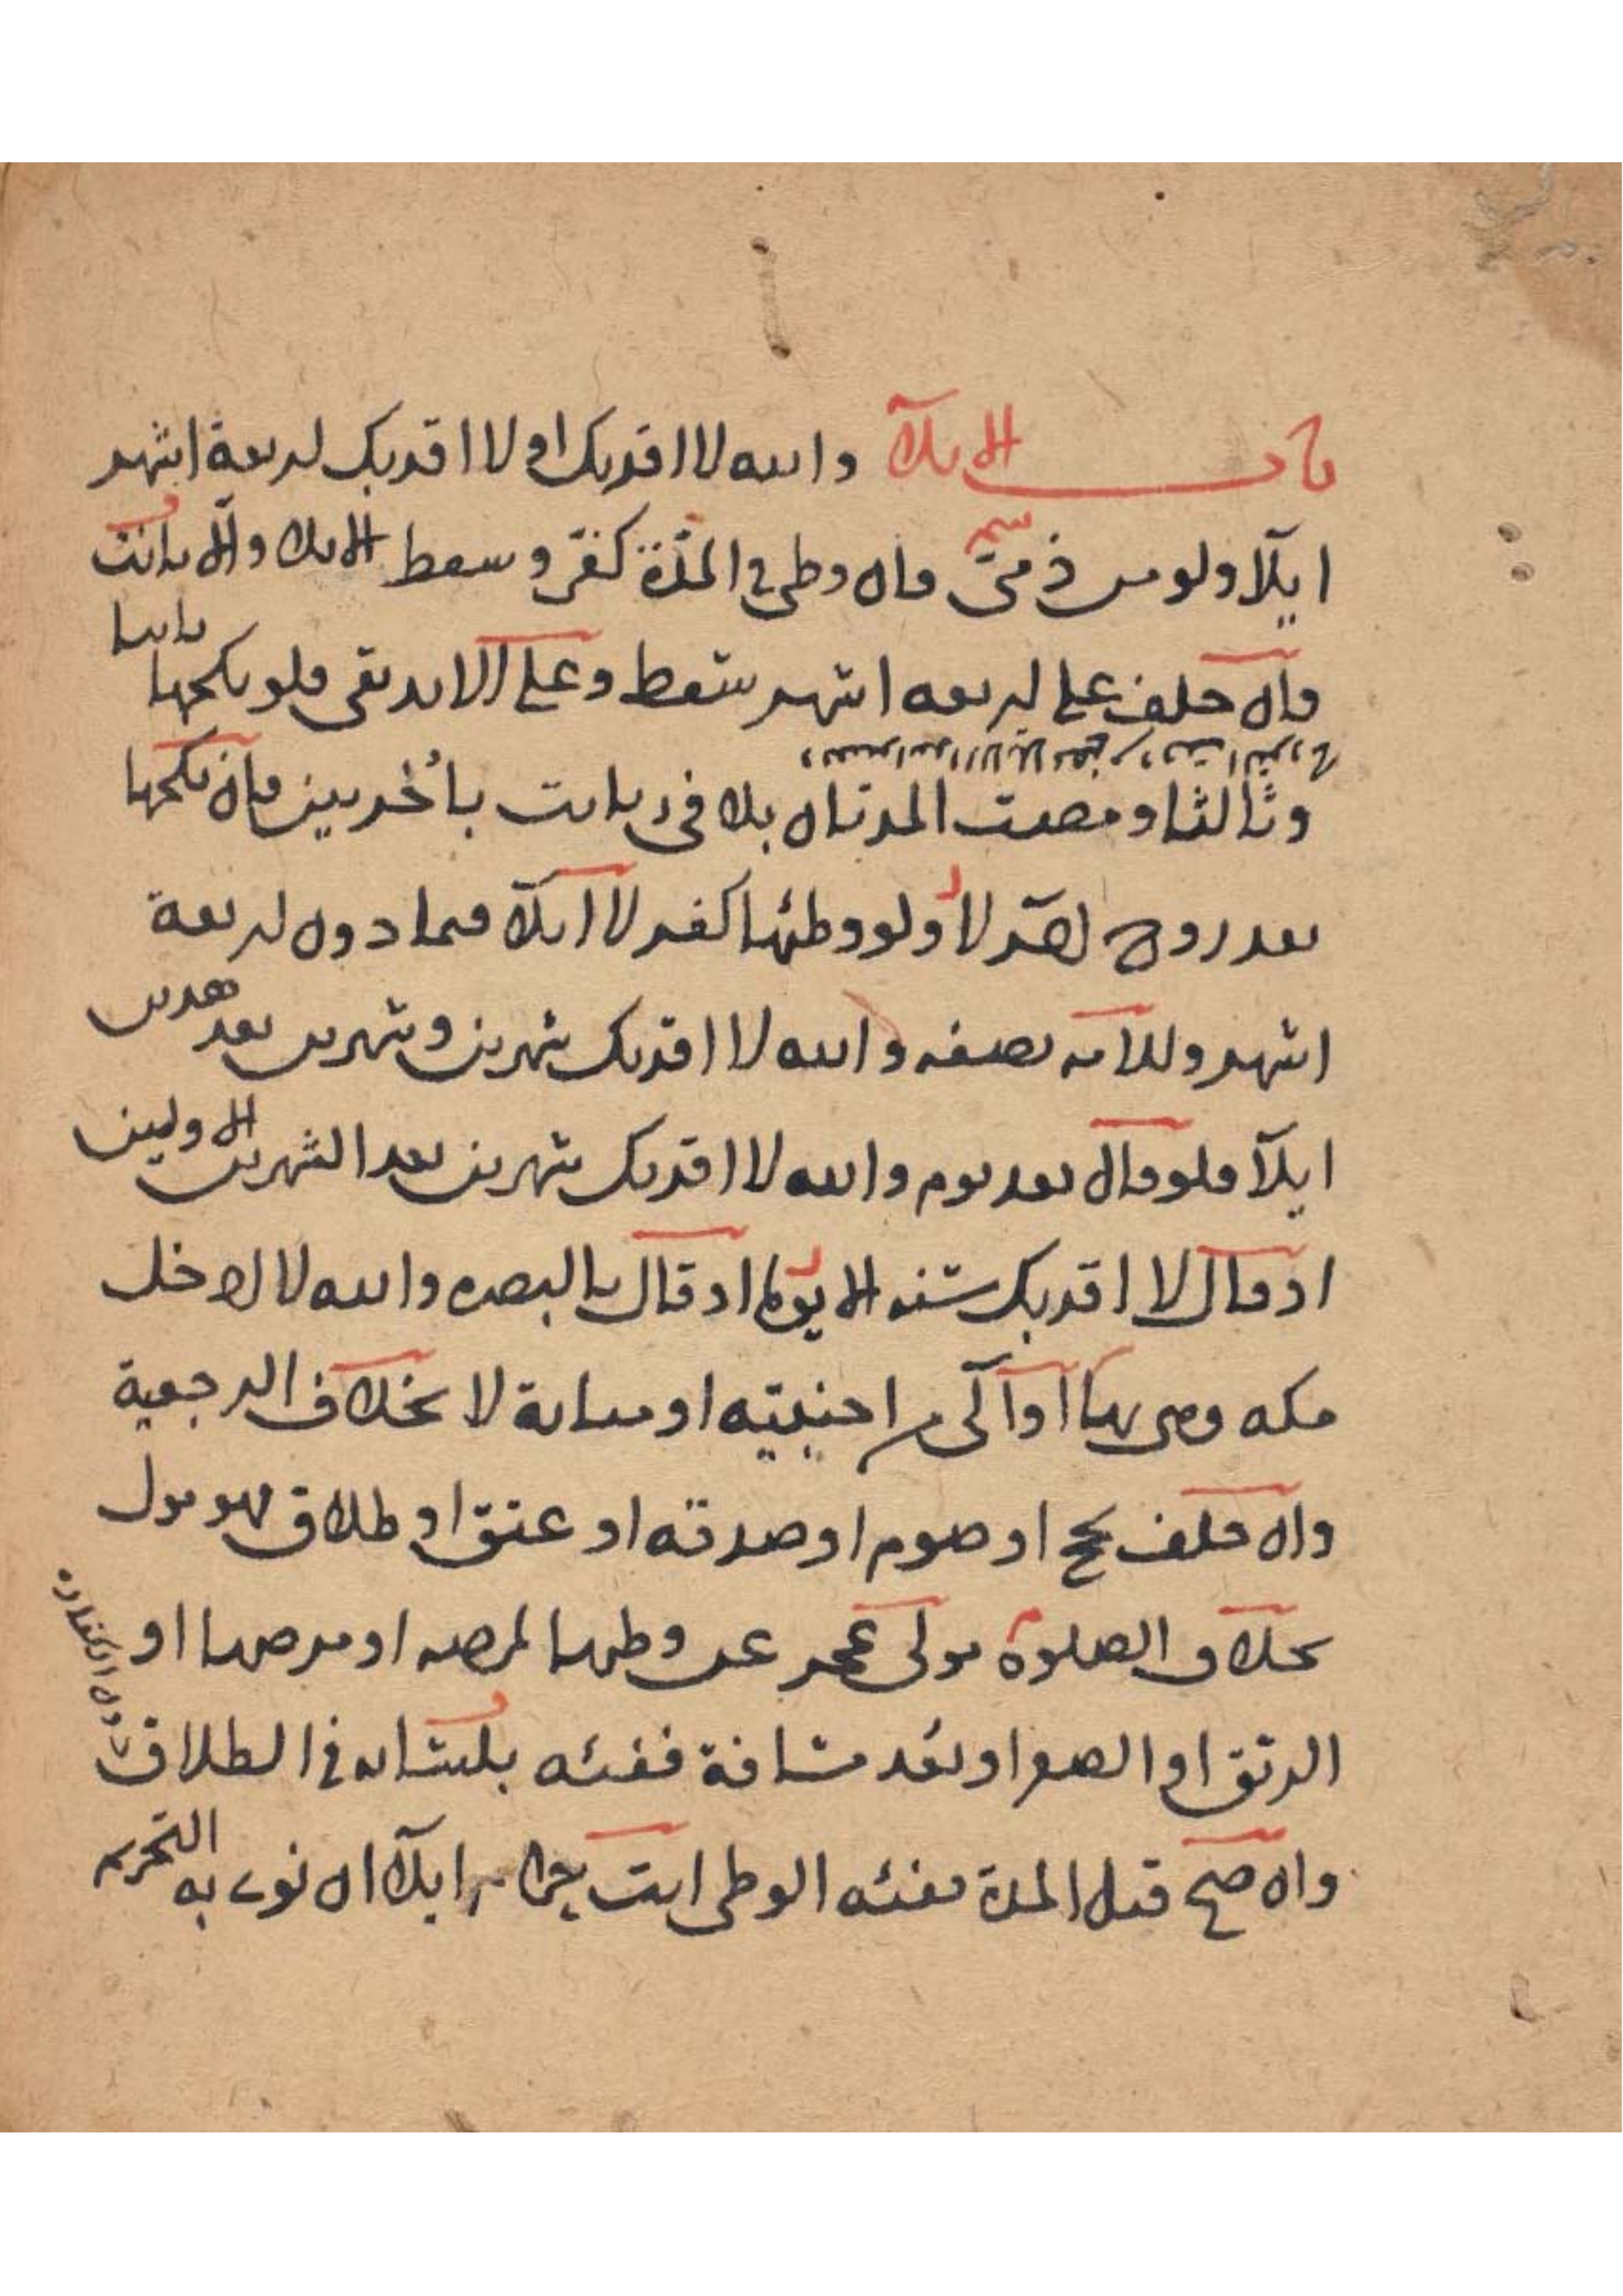 باب الايلآ والله لا اقربك او لا اقربك اربعة اشهر
ايلآ ولو من ذمىّ فان وطئ في المدّة كفّر وسقط الايلا والّا بانت
وان حلف على اربعه اشهر سقط وعلى الابد بقى فلو نكحها ثانيا
وثالثا ومضت المدتان بلا فئ بانت باُخريين فان نكحها
بعد زوج اخر لا ولو وطئها كفر لا ايلآ فيما دون اربعة
اشهر وللامه نصفه والله لا اقربك شهرين وشهرين بعد هذين
ايلآ فلو قال بعد يوم والله لا اقربك شهرين بعد الشهرين الاولين
او قال لا اقربك سنه الا يوما او قال بالبصره والله لا ادخل
مكه وهى بها او آلى من اجنبيته او مبانة لا بخلاف الرجعية
وان حلف بحج او صوم او صدقه او عتق او طلاق فهو مول
بخلاف الصلوة مولى عجز عن وطئها لمرضه او مرضها او
الرتق او الصغر او بُعد مسافة ففيئه بلسانه في الطلاق
دون الكفارة
وان صح قبل المدة ففيئه الوطى انت حرام ايلآ ان نوى به التحريم